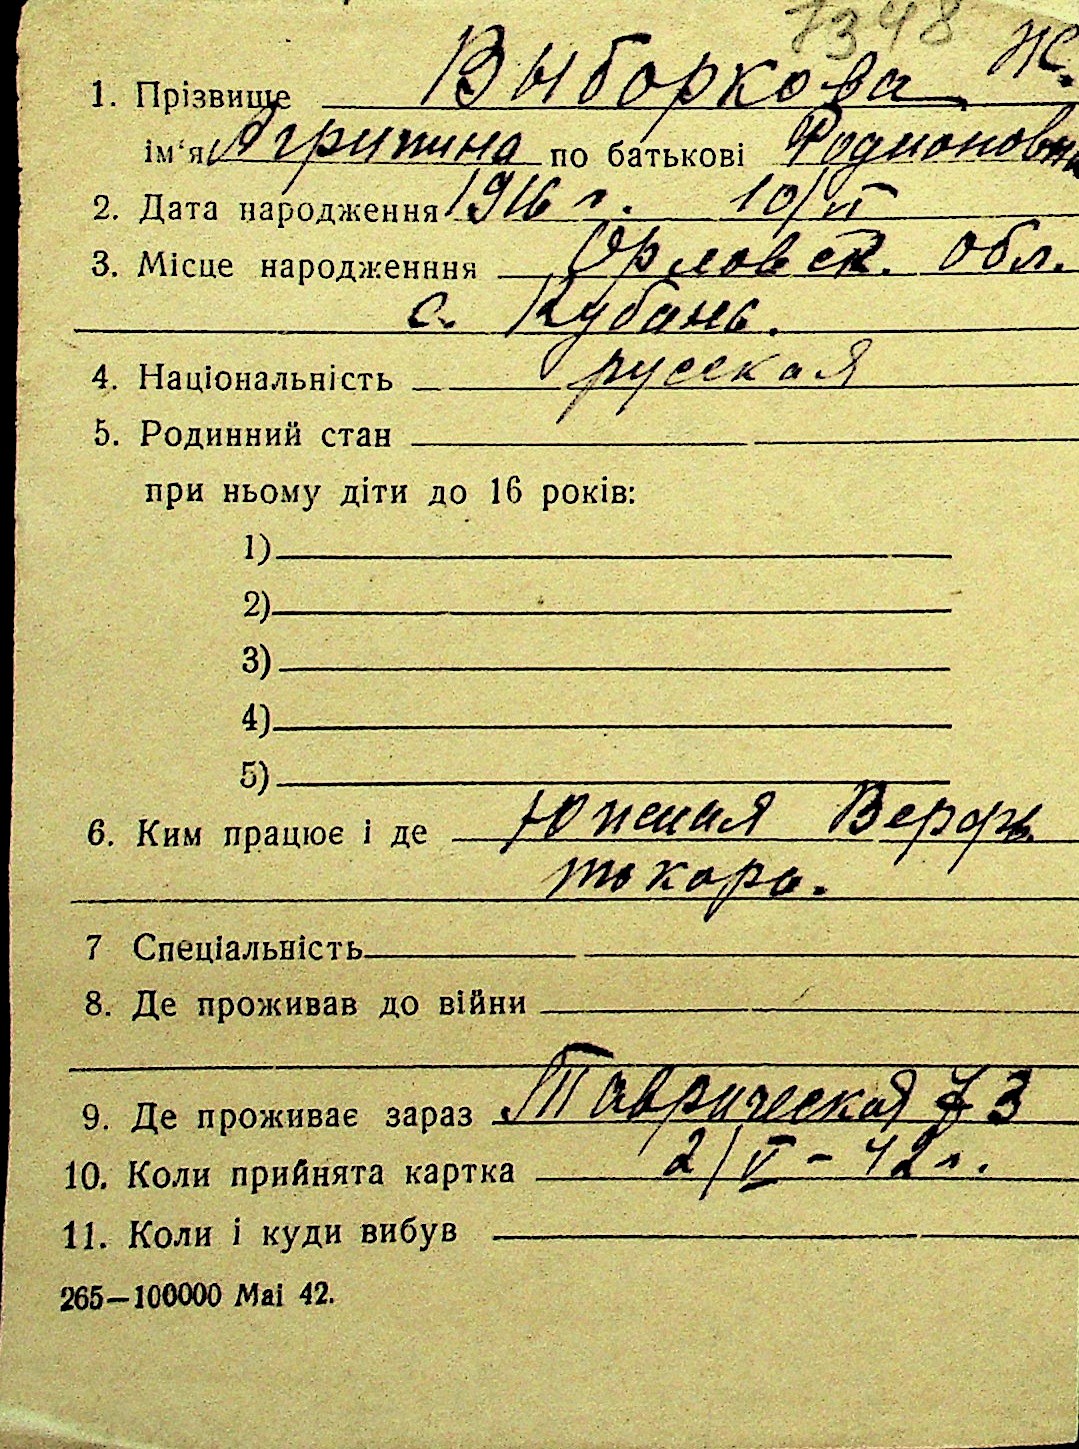 7348
Ж.
1. Прізвище Выборкова
ім'я Агрипина по батькові Родионовна
2. Дата народження 1916 г. 10/VI
3. Місце народженння Орловск. обл.
с. Кубань.
4. Національність русская
5. Родинний стан
при ньому діти до 16 років:
1)
2)
3)
4)
5)
6. Ким працює і де Южная Верфь
токарь.
7 Спеціальність
8. Де проживав до війни
9. Де проживає зараз Таврическая 73
10. Коли прийнята картка 2/V - 42 г.
11. Коли і куди вибув
265—100000 Маі 42.